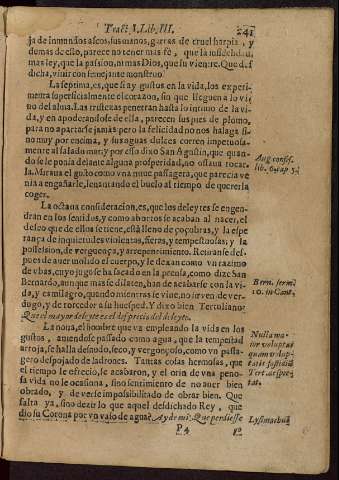 Tract. V. Lib. III. 241
ja de inmundos ascos, sus manos, garras de cruel harpia, y
demas de esso, parece no tener mas fè, que la infidelidad,
mas ley, que la passion, ni mas Dios, que su vientre. Que des
dicha, viuir con semejante monstruo.
La septima, es, que si ay gustos en la vida, los experi
menta superficialmente el coraçon, sin que lleguen a lo viuo
del alma. Las tristezas penetran hasta lo intimo de la vi
da, y en apoderandose de ella, parecen sus pies de plomo,
para no apartarse jamás: pero la felicidad no nos halaga si
no muy por encima, y sus aguas dulces corren impetuosa
mente al salado mar; y por esso dixo San Agustin, que quan-
do se le ponia delante alguna prosperidad, no ossaua tocar
la. Miraua el gusto como vna muger passagera, que parecia ve
nia a engañarle, leuantando el buelo al tiempo de quererla
coger.
Aug. confess.
lib. 6. cap. 5.
La octaua consideracion, es, que los deleytes se engen-
dran en los sentidos, y como abortos se acaban al nacer, el
desseo que de ellos se tiene, està lleno de çoçobras, y la espe
rança de inquietudes violentas, fieras, y tempestuosas; y la
possession, de verguença, y arrepentimiento. Retiranse des-
pues de auer molido el cuerpo, y le dexan como vn razimo
de vbas, cuyo jugo se ha sacado en la prensa, como dize San
Bernardo, aunque mas se dilaten, han de acabarse con la vi-
da, y es milagro, quando mientras se viue, no siruen de verdu-
dugo, y de torcedor a su huesped. Y dixo bien Tertuliano:
Que el mayor deleyte es el desprecio del deleyte.
Bern. serm.
10. in Cant.
La nona, el hombre que va empleando la vida en los
gustos, auiendose passado como agua, que la tempestad
arroja, se halla desnudo, seco, y vergonçoso, como vn passa-
gero despojado de ladrones. Tantas cosas hermosas, que
el tiempo le ofrecio, se acabaron, y el orin de vna peno-
sa vida no le ocasiona, sino sentimiento de no auer bien
obrado, y de verse impossibilitado de obrar bien. Que
falta ya, sino dezir lo que aquel desdichado Rey, que
dio su Corona por vn vaso de agua? Ay de mi! Que perdiesse
Nulla ma-
ior voluptas
quam volup-
tatis fastidium
Tert. de spec
tat.
Lysimachus
P 4